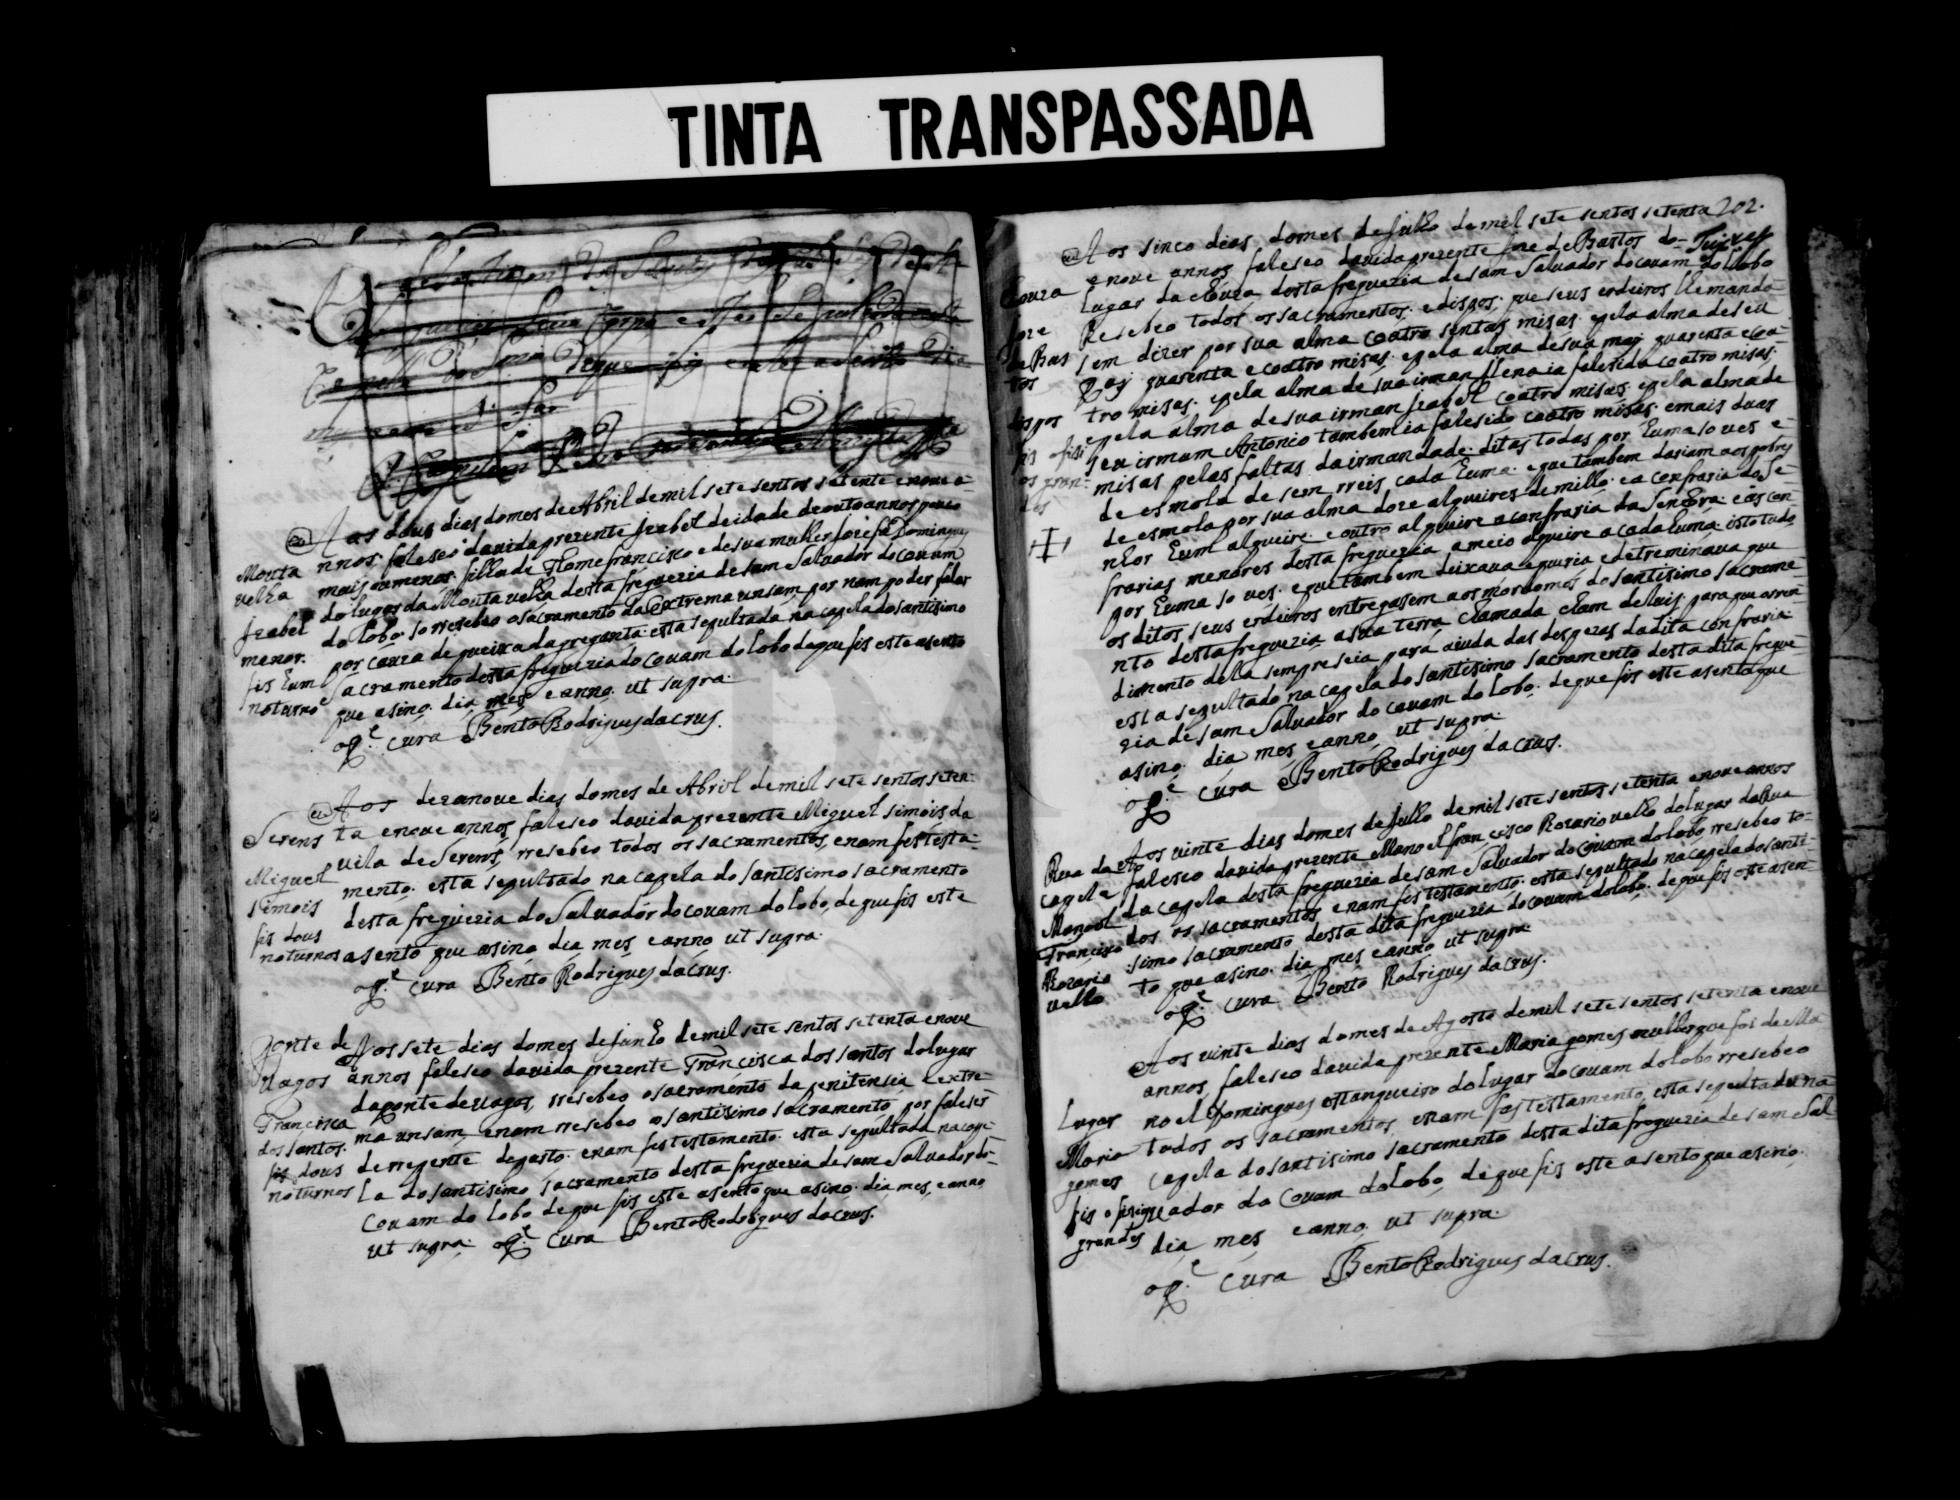 TINTA TRANSPASSADA
Aos dous dias domes de Abril demil sete sentos setente e nove a-
Mouta nnos faleseo davida prezente Jzabel deidade deoutoannos pouco
velha mais oumenos. filha de Thome francisco e desua mulher Josefa Domingues
Jzabel do lugar da Mouta velha desta freguezia desam Salvador do covam
menor. do lobo. so rresebeo osacramento da Extrema unsam por nam poder falar
fis hum por cauza de queixa da greganta. esta sepultada na capela dosantisimo
noturno Sacramento desta freguezia do Covam do lobo dequefis este asento
que asino. dia mes e anno. ut supra.
o P.e cura Bento Rodrigues da crus.
Aos dezanove dias domes de Abril demil sete sentos seten-
Serens ta enove annos faleseo davida prezente Miguel simois da
Miguel vila de Serens, rresebeo todos os sacramentos, enam fes testa-
simois mento. esta sepultado na capela do santisimo sacramento
fis dous desta freguezia do Salvador docovam do lobo, de quefis este
noturnos asento que asino dia mes eanno ut supra.
o P.e cura Bento Rodrigues dacrus.
ponte de Aos sete dias domes dejunho demil sete sentos setenta enove
vagos annos faleseo davida prezente Francisca dos santos dolugar
Francisca daponte devagos, rresebeo osacramento da penitensia Eextre-
dos santos. ma unsam, enam rresebeo osantisimo sacramento, por faleser
fis dous derrepente depasto. enam fes testamento. esta sepultada nacape-
noturnos La do santisimo sacramento desta freguezia desam Salvador do-
Covam do lobo de que fis este asento que asino. dia mes, e anno
ut supra. o P.e cura Bento Rodrigues da crus.
202.
Aos sinco dias domes dejulho demil sete sentos setenta
e nove annos faleseo davida prezente joze de Bastos do
Couza Lugar da desta freguezia desam Salvador docovam do lobo
joze Resebeo todos os sacramentos. e dispos. que seus erdeiros lhe mando-
de Bas sem dizer por sua alma coatro sentas misas. epela alma deseu
tos Pay quarenta e coatro misas. epela alma desua may quarenta ecoa-
dispos tro misas. epela alma de sua irman falesida coatro misas.
fis epela alma de sua irman Jzabel coatro misas. epela alma de
os gran- seu irmam Antonio tambem ia falesido coatro misas. emais duas
des misas pelas faltas dairmandade. ditas todas por huma so ves e
de esmola de sem rreis cada huma. e que tambem dasiam aos pobres
de esmola por sua alma doze alqueires demilho. e a confraria do Se-
nhor hum alqueire. e outro alqueire a confraria da Senhora. e as con-
frarias menores desta freguezia ameio alqueire a cada huma. isto tudo
por huma so ves. eque tambem deixava e queria e detreminava que
os ditos seus erdeiros entregasem aos mordomos do santisimo sacrame-
nto desta freguezia asua terra chamada cham deluis. para que orren-
dimento della sempre seia para aiuda das despezas dadita confraria.
esta sepultado na capela do santisimo sacramento desta dita fregue-
zia de sam Salvador do covam do lobo. de que fis este asento que
asino. dia mes eanno ut supra.
o P.e cura Bento Rodrigues da crus.
Aos vinte dias domes dejulho demil sete sentos setenta enove annos
Rua da faleseo davida prezente Manoel francisco Rozario velho do lugar da Rua
capela da capela desta freguezia desam Salvador do covam do lobo rresebeo to-
Manoel dos os sacramentos enam fes testamento. esta sepultado na capela do santi-
Francisco simo sacramento desta dita freguezia docovam do lobo. de que fis este asen-
Rozario to que asino. dia mes eanno ut supra.
velho o P.e cura Bento Rodrigues da crus.
Aos vinte dias domes de Agosto demil sete sentos setenta enove
annos faleseo davida prezente Maria gomes mulher que foi de Ma
Lugar noel Domingues estangueiro do lugar docovam dolobo rresebeo
Maria todos os sacramentos enam fes testamento. esta sepultada na
gomes capela do santisimo sacramento desta dita freguezia de sam Sal-
fis vador do Covam do lobo, de que fis este asento que asino.
grandes dia mes eanno. ut supra.
o P.e cura Bento Rodrigues da crus.